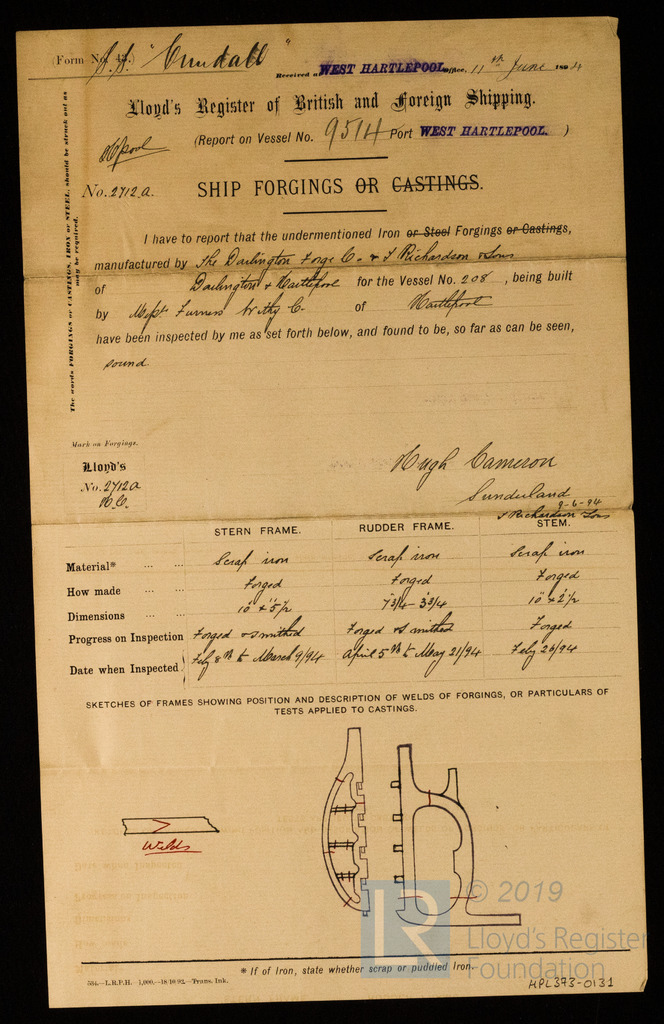 (Form No. 43.) S.S. "Cundall"
Received at WEST HARTLEPOOL Office, 11th June 1894
Lloyd's Register of British and Foreign Shipping.
(Report on Vessel No. 9514 Port WEST HARTLEPOOL. )
H'pool
No. 2712a.
SHIP FORGINGS OR CASTINGS.
The words FORGINGS or CASTINGS, IRON or STEEL, should be struck out as may be required.
I have to report that the undermentioned Iron or Steel Forgings or Castings,
manufactured by The Darlington Forge Co. & T Richardson & Sons
of Darlington & Hartlepool for the Vessel No. 208, being built
by Messrs Furness Withy Co. of Hartlepool
have been inspected by me as set forth below, and found to be, so far as can be seen,
sound.
Mark on Forgings.
Lloyd's
No. 2712a
H.C.
Hugh Cameron
Sunderland
9-6-94
T Richardson & Sons
STERN FRAME. RUDDER FRAME. STEM.
Material* ... ... Scrap iron Scrap iron Scrap iron
How made ... ... Forged Forged Forged
Dimensions ... ... 10" x 5 1/2 7 3/4 - 3 3/4 10" x 2 1/2
Progress on Inspection Forged & smithed Forged & smithed Forged
Date when Inspected Feby 8th to March 9/94 April 5th to May 21/94 Feby 26/94
SKETCHES OF FRAMES SHOWING POSITION AND DESCRIPTION OF WELDS OF FORGINGS, OR PARTICULARS OF
TESTS APPLIED TO CASTINGS.
Welds
© 2019
LR
Lloyd's Register
Foundation
* If of Iron, state whether scrap or puddled Iron.
534.—L.R.P.H.—1,000.—18/10/92.—Trans. Ink.
HPL373-0131